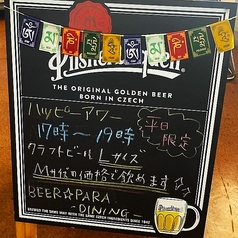 Pilsner Urquell
THE ORIGINAL GOLDEN BEER
BORN IN CZECH
ハッピーアワー
平日
限定
17時〜19時
クラフトビール Lサイズ
Mサイズの価格で飲めます
BEER☆PARA
-DINING-
BREWED THE SAME WAY WITH THE SAME CZECH INGREDIENTS SINCE 1842